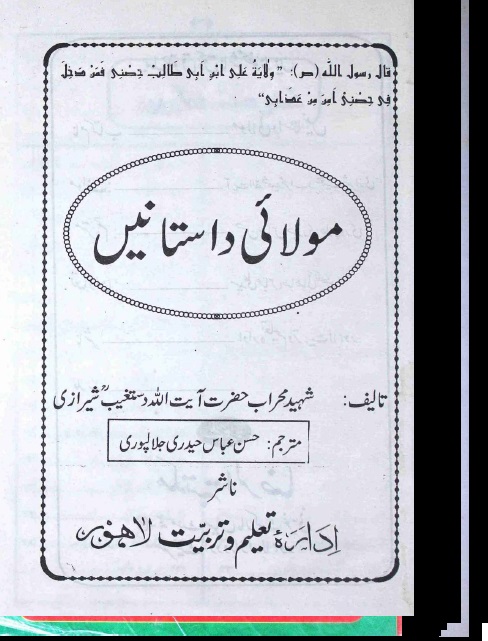 قال رسول الله (ص): "ولاية علي ابن ابي طالب حصني فمن دخل
في حصني امن من عذابي"
مولائی داستانیں
تالیف: شہید محراب حضرت آیت اللہ دستغیبؒ شیرازی
مترجم: حسن عباس حیدری جلالپوری
ناشر
ادارۂ تعلیم و تربیّت لاہور